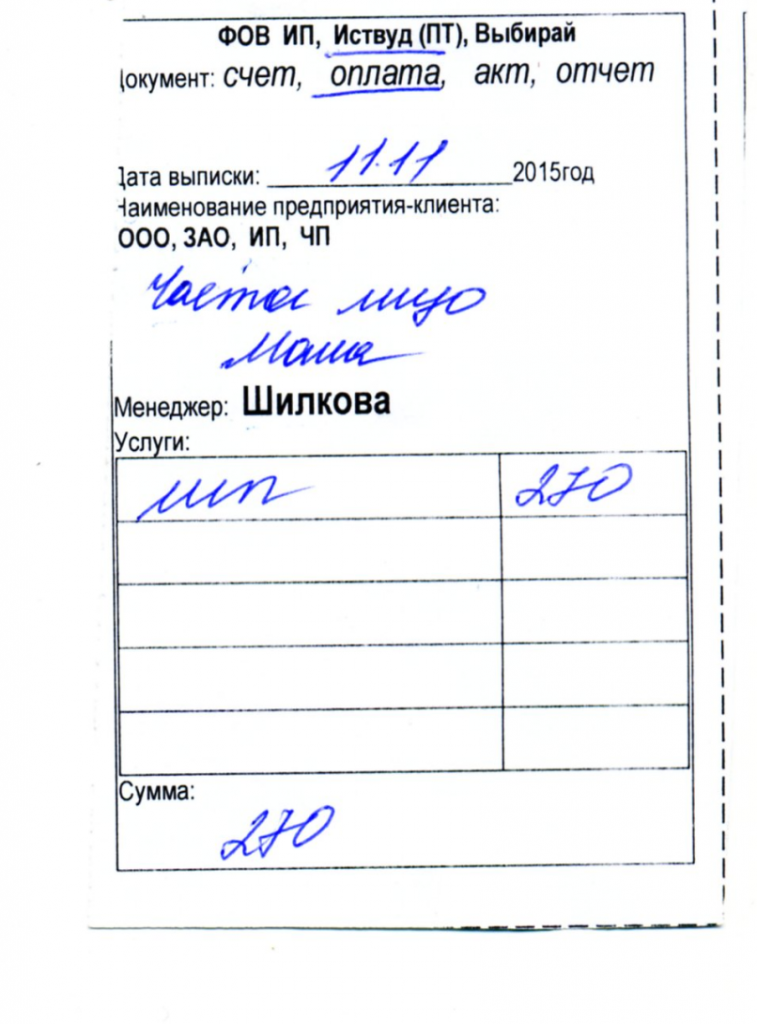 ФОВ ИП, Иствуд (ПТ), Выбирай
Документ: счет, оплата, акт, отчет
Дата выписки: 11.11 2015год
Наименование предприятия-клиента:
ООО, ЗАО, ИП, ЧП
Частное лицо
Маша
Менеджер: Шилкова
Услуги:
270
Сумма:
270